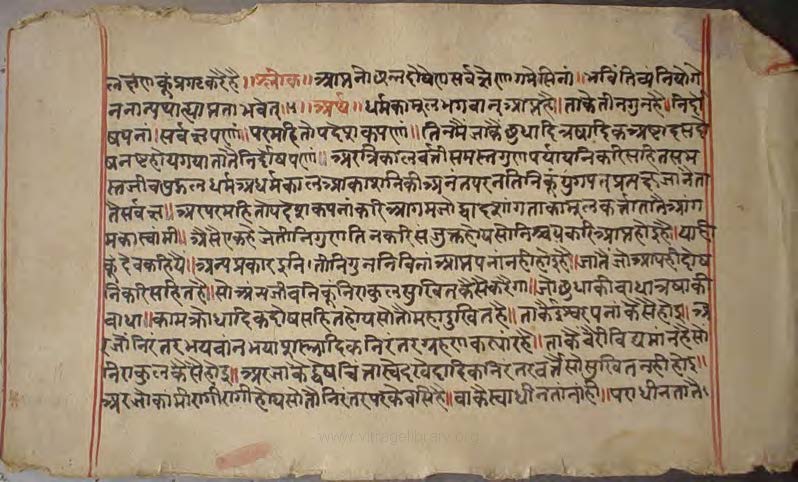 लक्षण कूं प्रगट करै है॥ श्लोक॥ आप्तनोछिन्नदोषेण सर्वज्ञेणागमेसिना॥ भवितव्यं नियोगे
न नान्यथा ह्याप्तता भवेत्॥५॥ अर्थ॥ धर्म का मूल भगवान् आप्त है॥ ताके तीन गुन है॥ निर्दो
षपनां॥ सर्वज्ञपणां॥ परमहितोपदेशकपणां॥ तिनमैं जाकै क्षुधादि त्रषादिक अष्टादस दो
ष नष्ट होय गया तातै निर्दोषपणां॥ अर त्रिकालवर्त्ती समस्त गुणपर्यायनिकरि सहित सम
स्त जीव पुद्गल धर्म अधर्म काल आकाश निकी अनंत परनति निकूं युगपत् प्रतक्ष जानै ता
तै सर्वज्ञ॥ अर परमहितोपदेशकपनांकरि आगम जो द्वादशांग ताका मूलकर्त्ता तातै आग
म का स्वामी॥ अैसै एक है जे तीनि गुण तिनकरि संजुक्त होय सो निश्चयकरि आप्त होइ है॥ याही
कूं देव कहिये॥ अन्य प्रकार इनि तीनि गुननि विनां आप्तपनां नही होइ है॥ जातै जो आपही दोष
निकरि सहित है॥ सो अन्य जीवनिकूं निराकुल सुखित कैसै करेगा॥ जो क्षुधा की बाधा त्रषा की
बाधा॥ काम क्रोधादिक दोष सहित होय सो तो महादुखित है॥ ताकै ईश्वरपनां कैसै होइ॥ अ
र जो निरंतर भयवान भया शस्त्रादिक निरंतर ग्रहण कर्यां रहै॥ ताकै वैरी विद्यमांन है सो
निराकुल कैसै होइ॥ अर जाकै द्वेष चिंता स्वेद खेदादिक निरंतर वर्त्तै सो सुखित नही होइ॥
अर जो कामी रागी होय सो तो निरंतर परकै वसि है॥ वाकै स्वाधीनता नांही॥ पराधीनतातै
www.vitragelibrary.org